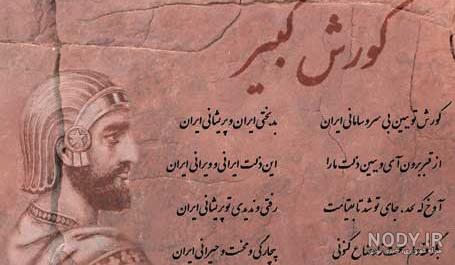 کورش کبیر
کورش تو ببین بی سر و سامانی ایران بدبختی ایران و پریشانی ایران
از قبر برون آی و ببین ذلت ما را این ذلت ایرانی و ویرانی ایران
آوخ که لحد، جای تو شد تا به قیامت رفتی و ندیدی تو پریشانی ایران
گنونی بیچارگی و محنت و حیرانی ایران
NODY.IR